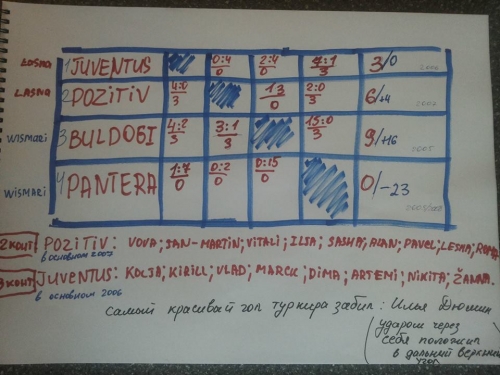 LASNA 1 JUVENTUS 0:4 0 2:4 0 7:1 3 3/0
LASNA 2 POZITIV 4:0 3 1:3 0 2:0 3 6/+4
WISMARI 3 BULDOGI 4:2 3 3:1 3 15:0 3 9/+16
WISMARI 4 PANTERA 1:7 0 0:2 0 0:15 0 0/-23
POZITIV: VOVA; JAN-MARTIN; VITALI; ILJA; SASHA; ALAN; PAVEL; LESHA;
в основном 2007
JUVENTUS: KOLJA; KIRILL; VLAD; MARCK; DIMA; ARTEMI; NIKITA; ŽANNA.
в основном 2006
самый красивый гол турнира забил: Илья
ударом через
себя положил
в дальний верхний
угол